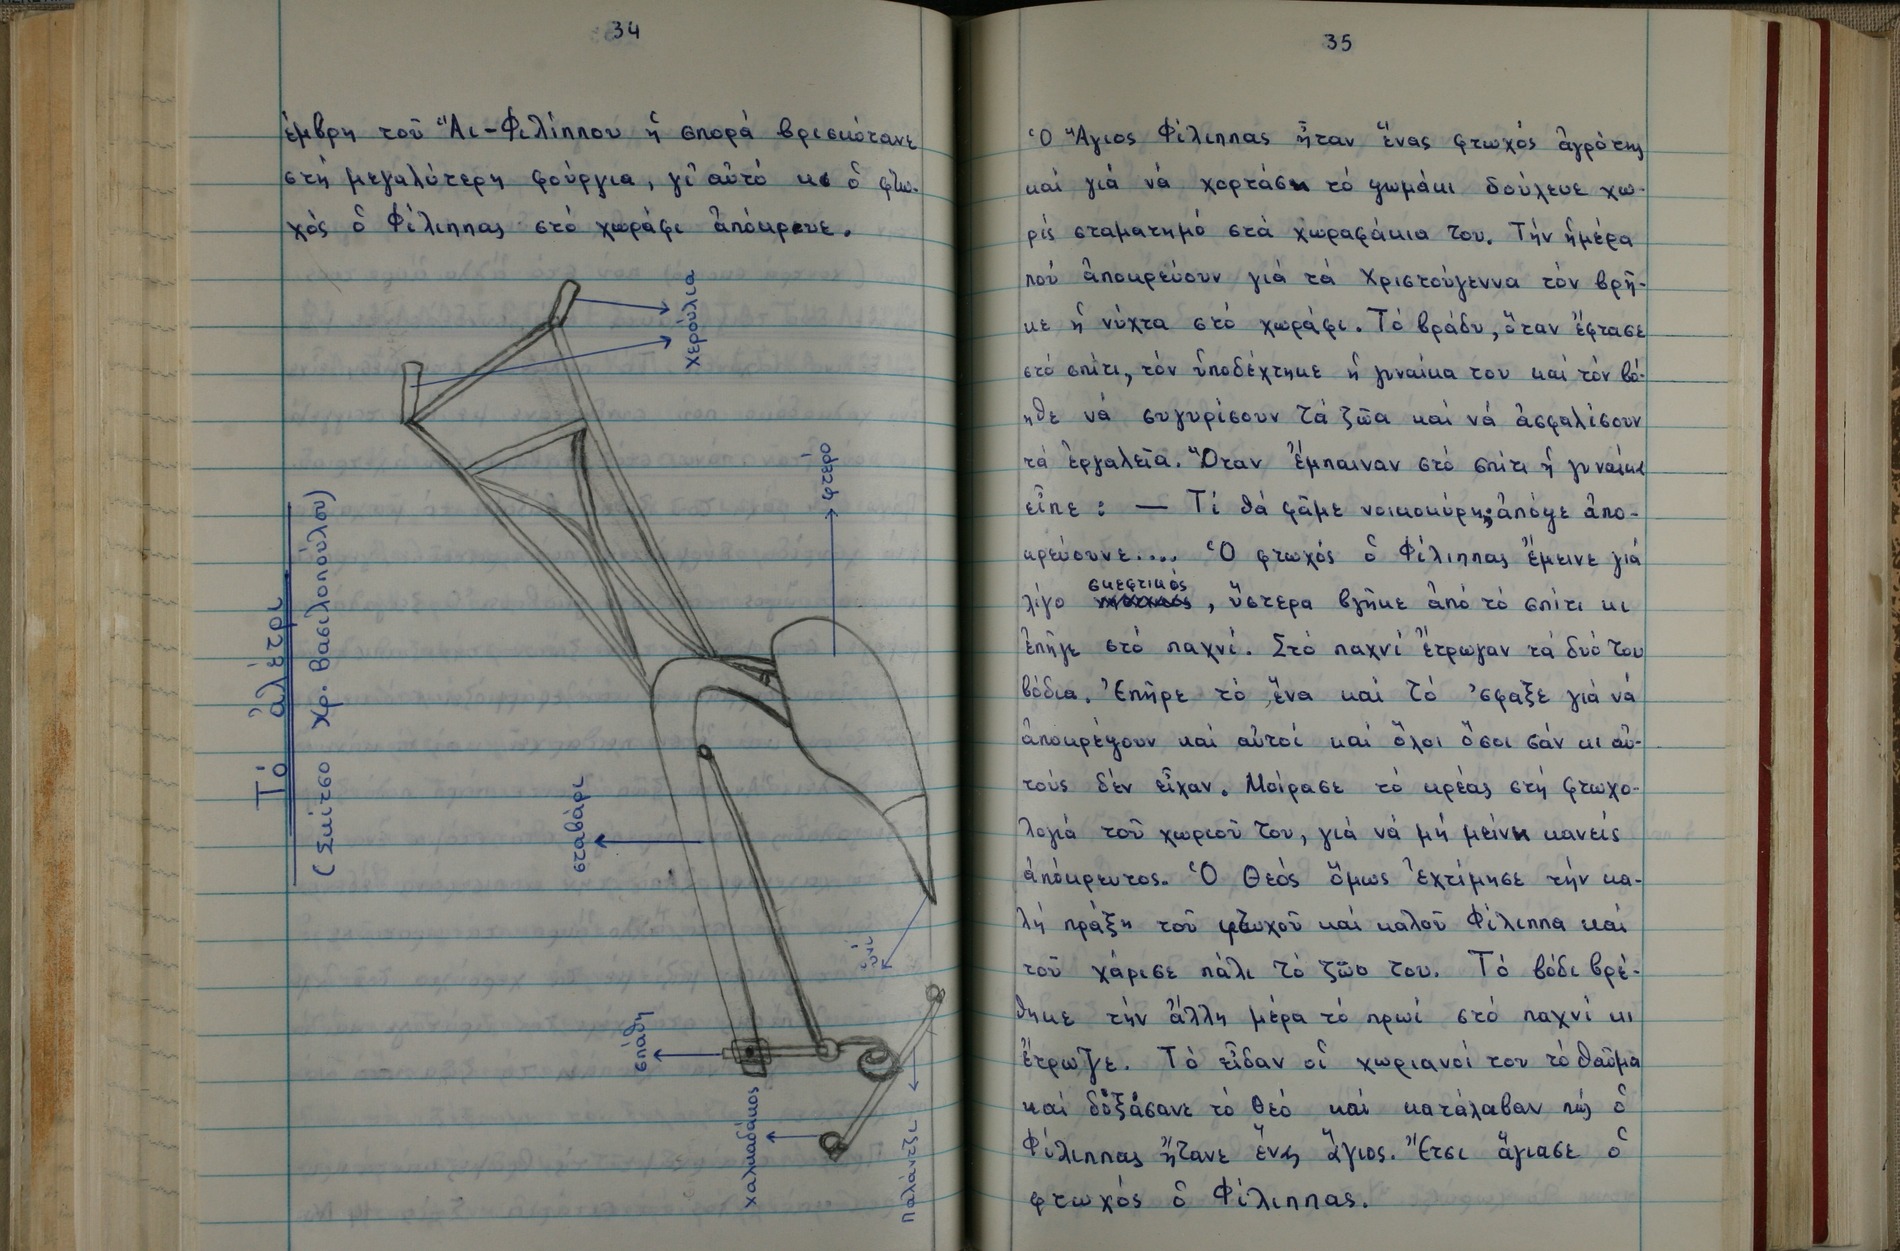 34
ἐμβρη τοῦ Ἅι-Φιλίππου ἡ σπορά βρισκότανε
στή μεγαλύτερη φούργια, γι' αὐτό κι ὁ φτω-
χός ὁ Φίλιππας στό χωράφι ἀπόκρευε.
Τό ἀλέτρι
(Σκίτσο Χρ. Βασιλοπούλου)
χερούλια
φτερό
σταβάρι
ὑνί
σπάθη
χαλκαδάκος
παλάντζι
35
Ὁ Ἅγιος Φίλιππας ἦταν ἕνας φτωχός ἀγρότης
καί γιά νά χορτάση τό ψωμάκι δούλευε χω-
ρίς σταματημό στά χωραφάκια του. Τήν ἡμέρα
πού ἀποκρεύουν γιά τά Χριστούγεννα τόν βρῆ-
κε ἡ νύχτα στό χωράφι. Τό βράδυ, ὅταν ἔφτασε
στό σπίτι, τόν ὑποδέχτηκε ἡ γυναίκα του καί τόν βό-
ηθε νά συγυρίσουν τά ζῶα καί νά ἀσφαλίσουν
τά ἐργαλεῖα. Ὅταν ἔμπαιναν στό σπίτι ἡ γυναίκα
εἶπε : — Τί θά φᾶμε νοικοκύρη; ἀπόψε ἀπο-
κρεύουνε.... Ὁ φτωχός ὁ Φίλιππας ἔμεινε γιά
λίγο σκεφτικός, ὕστερα βγῆκε ἀπό τό σπίτι κι
ἐπῆγε στό παχνί. Στό παχνί ἔτρωγαν τά δυό του
βόδια. Ἐπῆρε τό ἕνα καί τό 'σφαξε γιά νά
ἀποκρέψουν καί αὐτοί καί ὅλοι ὅσοι σάν κι αὐ-
τούς δέν εἶχαν. Μοίρασε τό κρέας στή φτωχο-
λογιά τοῦ χωριοῦ του, γιά νά μή μείνη κανείς
ἀπόκρευτος. Ὁ Θεός ὅμως ἐχτίμησε τήν κα-
λή πράξη τοῦ φτωχοῦ καί καλοῦ Φίλιππα καί
τοῦ χάρισε πάλι τό ζῶο του. Τό βόδι βρέ-
θηκε τήν ἄλλη μέρα τό πρωί στό παχνί κι
ἔτρωγε. Τό εἶδαν οἱ χωριανοί του τό θαῦμα
καί δοξάσανε τό Θεό καί κατάλαβαν πώς ὁ
Φίλιππας ἤτανε ἕνας ἅγιος. Ἔτσι ἅγιασε ὁ
φτωχός ὁ Φίλιππας.